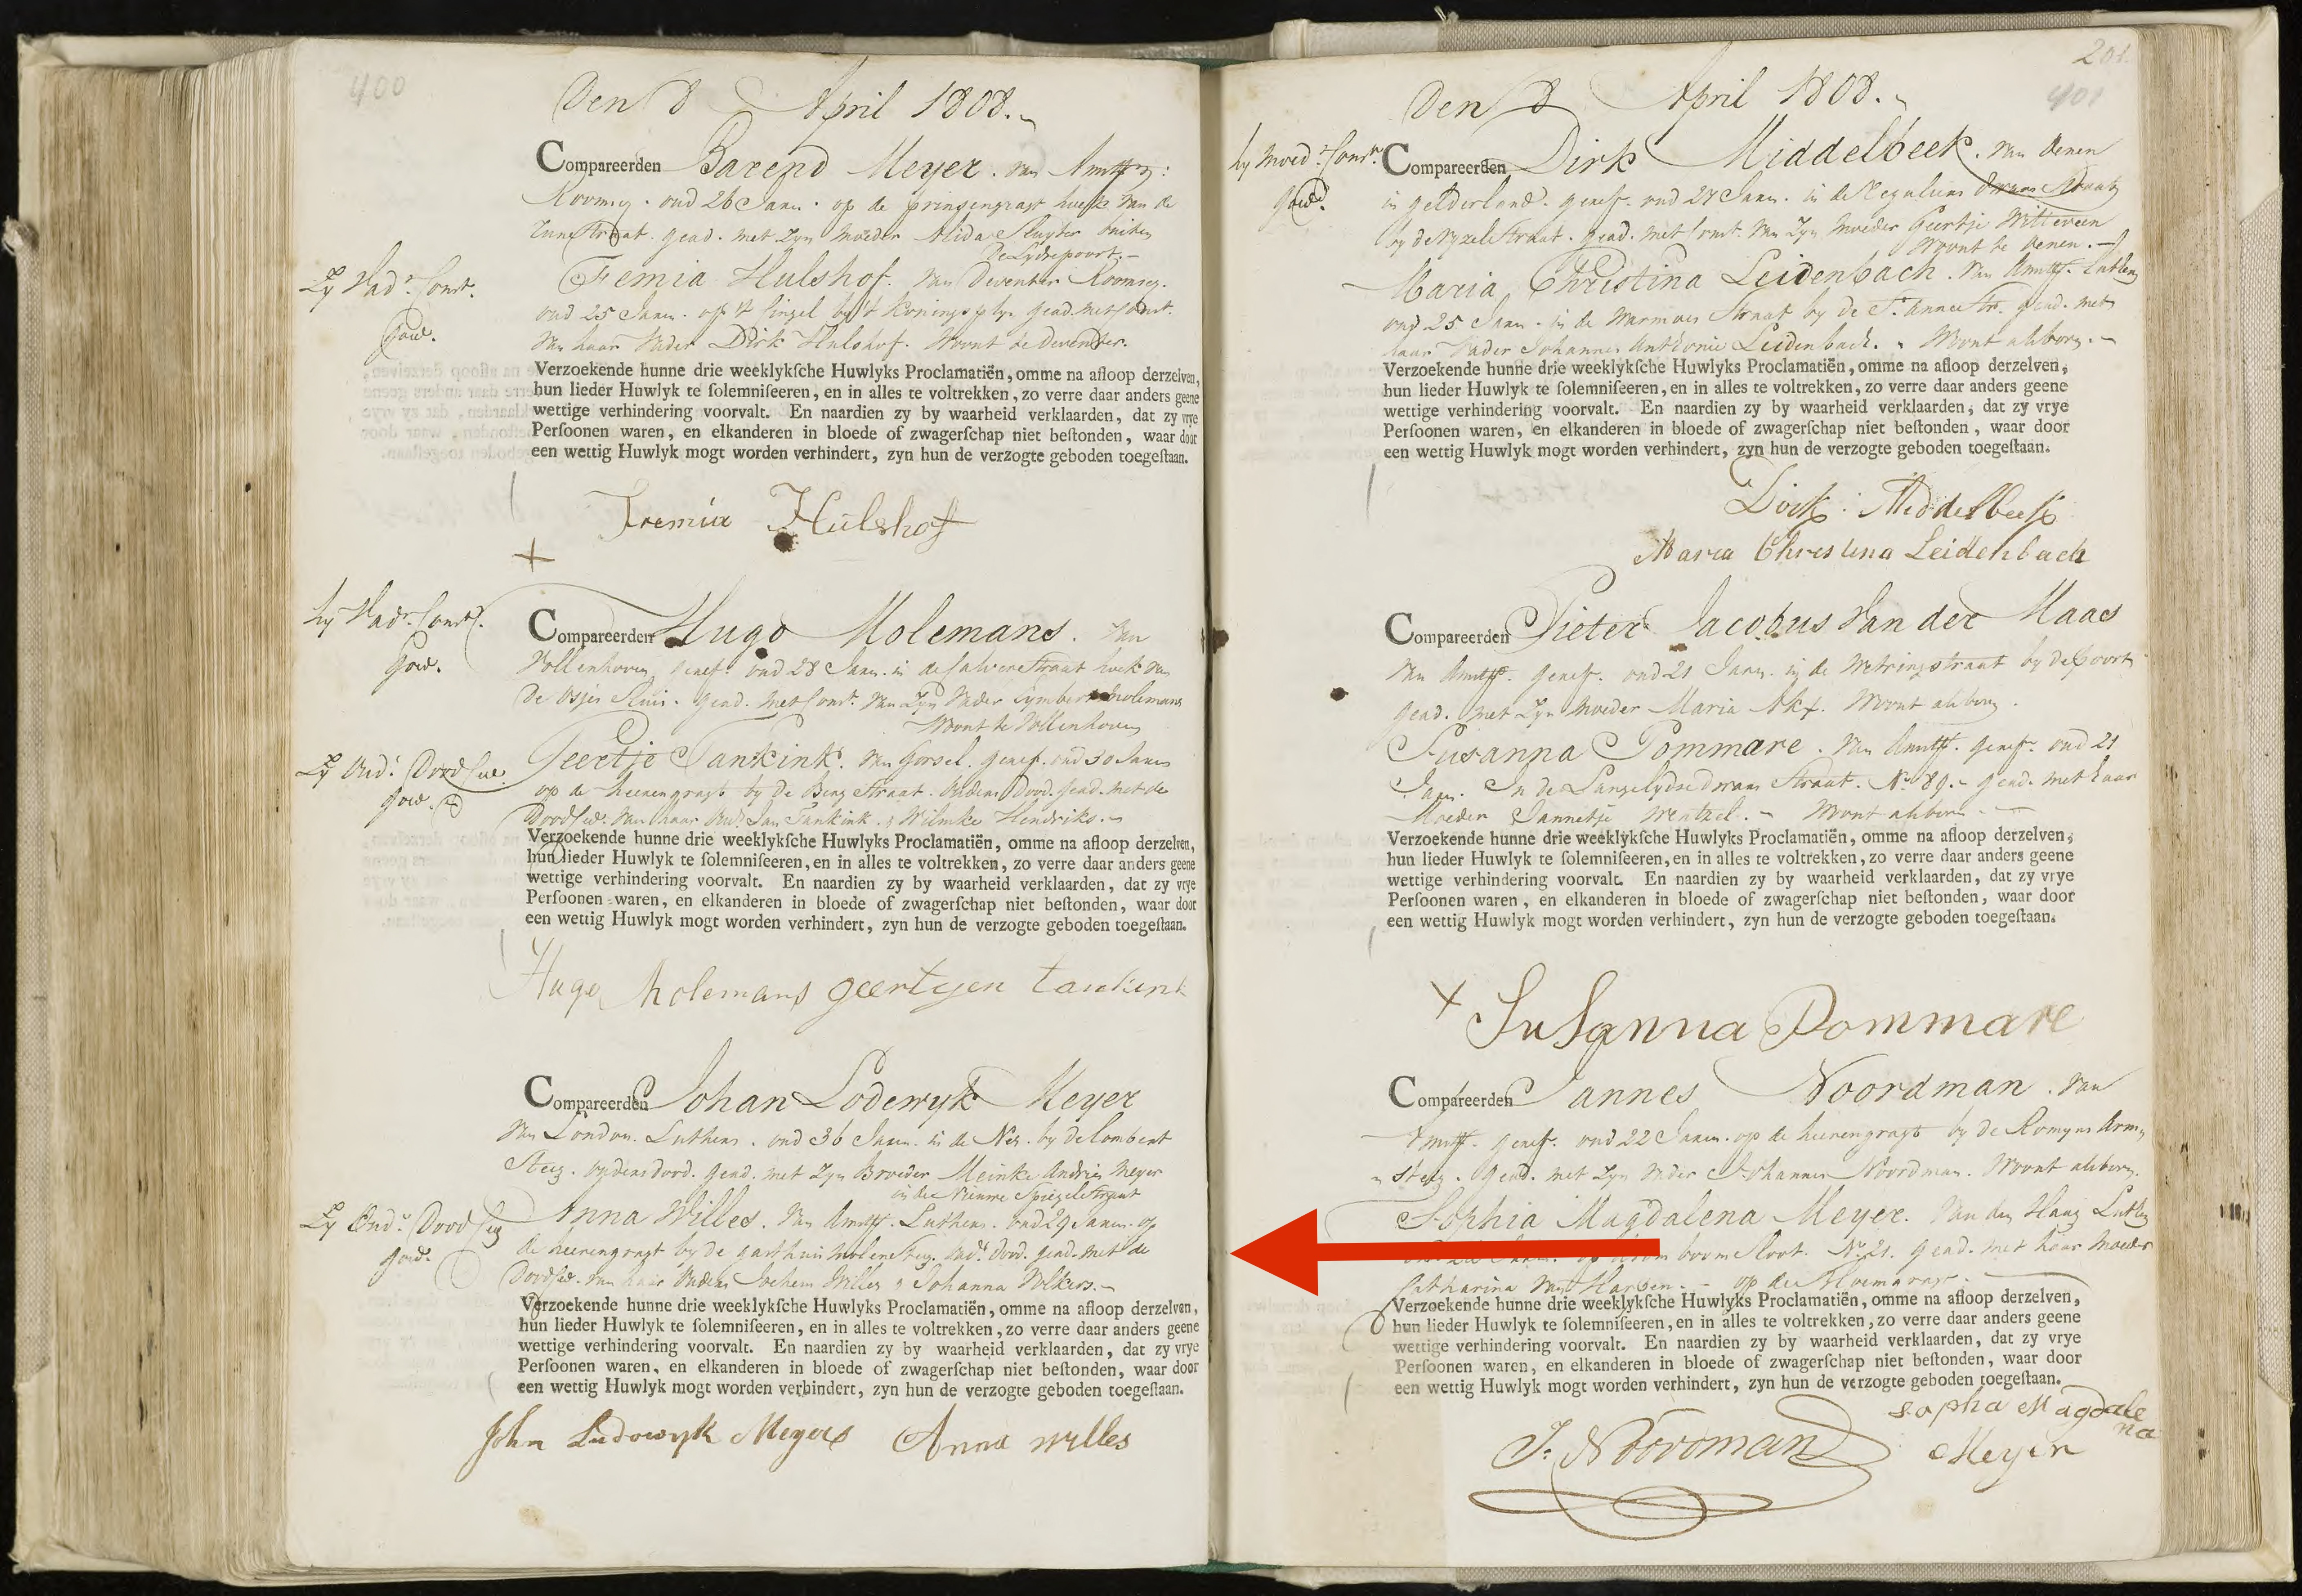 400
Den 8 April 1808.
Compareerden Barend Meyer. van Amstm:
Roomsg. oud 26 Jaar. op de prinsengragt hoek van de
Tuinstraat. gead. met Zyn moeder Alida Sluyter buiten
de Lydsepoort. –
Zy Vad. Const.
goed.
Femia Hulshof. van Deventer Roomsg.
oud 25 Jaar. op 't Singel by 't Koningsplyn gead. met Const.
van haar Vader Dirk Hulshof. Woont te Deventer.
Verzoekende hunne drie weeklykſche Huwlyks Proclamatiën, omme na afloop derzelven,
hun lieder Huwlyk te ſolemniſeeren, en in alles te voltrekken, zo verre daar anders geene
wettige verhindering voorvalt. En naardien zy by waarheid verklaarden, dat zy vrye
Perſoonen waren, en elkanderen in bloede of zwagerſchap niet beſtonden, waar door
een wettig Huwlyk mogt worden verhindert, zyn hun de verzogte geboden toegeſtaan.
Femia Hulshof
+
hy Vadr. Const.
goed.
Compareerden Hugo Molemans. van
Vollenhoven geref. oud 28 Jaar. in de Kalverstraat hoek van
de Osjes Sluis. gead. met Const. van Zyn Vader Lymbert Molemans
Woont te Vollenhoven
Zy Oud. Dood Ced.
goed.
Geertje Tankink. van Gorsel. geref. oud 30 Jaar
op de heerengragt by de Berg Straat. Ouders dood. gead. met de
Dood Ced. van haar Oud. Jan Tankink & Wilmke Hendriks. –
Verzoekende hunne drie weeklykſche Huwlyks Proclamatiën, omme na afloop derzelven,
hun lieder Huwlyk te ſolemniſeeren, en in alles te voltrekken, zo verre daar anders geene
wettige verhindering voorvalt. En naardien zy by waarheid verklaarden, dat zy vrye
Perſoonen waren, en elkanderen in bloede of zwagerſchap niet beſtonden, waar door
een wettig Huwlyk mogt worden verhindert, zyn hun de verzogte geboden toegeſtaan.
Hugo Molemans geertyen tankink
Compareerden Johan Lodewyk Meyer
van London. Luthers. oud 36 Jaar. in de Nes. by de Lombert
Steeg. Ouders dood. gead. met Zyn Broeder Meinke Andries Meyer
in de Nieuwe Spiegelstraat
Zy Oud. Dood Ced
goed.
Anna Willes. van Amst. Luthers. oud 29 Jaar. op
de heerengragt by de gasthuis molensteeg. Oud. dood. gead. met de
Dood Ced. van haar Ouders Jochem Willes & Johanna Volkers. –
Verzoekende hunne drie weeklykſche Huwlyks Proclamatiën, omme na afloop derzelven,
hun lieder Huwlyk te ſolemniſeeren, en in alles te voltrekken, zo verre daar anders geene
wettige verhindering voorvalt. En naardien zy by waarheid verklaarden, dat zy vrye
Perſoonen waren, en elkanderen in bloede of zwagerſchap niet beſtonden, waar door
een wettig Huwlyk mogt worden verhindert, zyn hun de verzogte geboden toegeſtaan.
John Ludowyk Meyers Anna willes
201
401
Den 8 April 1808.
hy Moed. Const.
goed.
Compareerden Dirk Middelbeek. van Venen
in gelderland. geref. oud 27 Jaar. in de Reguliers dwars Straat
by de Vyzelstraat. gead. met Const. van Zyn Moeder Geertje Witteveen
Woont te Venen. –
Maria Christina Leidenbach. van Amst. Luthers
oud 25 Jaar. in de Warmoes Straat by de St. Annestr. gead. met
haar Vader Johannes Anthonie Leidenbach. Woont alhier. –
Verzoekende hunne drie weeklykſche Huwlyks Proclamatiën, omme na afloop derzelven,
hun lieder Huwlyk te ſolemniſeeren, en in alles te voltrekken, zo verre daar anders geene
wettige verhindering voorvalt. En naardien zy by waarheid verklaarden, dat zy vrye
Perſoonen waren, en elkanderen in bloede of zwagerſchap niet beſtonden, waar door
een wettig Huwlyk mogt worden verhindert, zyn hun de verzogte geboden toegeſtaan.
Dirk Middelbeek
Maria Christina Leidenbach
Compareerden Pieter Jacobus van der Maas
van Amst. geref. oud 21 Jaar. in de Weteringstraat by de poort
gead. met Zyn Moeder Maria Woont alhier.
Susanna Pommare. van Amst. geref. oud 21
Jaar. In de Langelydsedwars Straat. No. 89. – gead. met haar
Moeder Jannetje Wentzel. – Woont alhier –
Verzoekende hunne drie weeklykſche Huwlyks Proclamatiën, omme na afloop derzelven,
hun lieder Huwlyk te ſolemniſeeren, en in alles te voltrekken, zo verre daar anders geene
wettige verhindering voorvalt. En naardien zy by waarheid verklaarden, dat zy vrye
Perſoonen waren, en elkanderen in bloede of zwagerſchap niet beſtonden, waar door
een wettig Huwlyk mogt worden verhindert, zyn hun de verzogte geboden toegeſtaan.
+ SuSanna Pommare
Compareerden Jannes Noordman. van
Amst. geref. oud 22 Jaar. op de heerengragt by de Romyns Arm
Steeg. gead. met Zyn Vader Johannes Noordman. Woont alhier.
Sophia Magdalena Meyer. van den Haag Luthers
boom Sloot. No. 21. gead. met haar Moeder
Catharina van Harsen. – op de Bloemgragt.
Verzoekende hunne drie weeklykſche Huwlyks Proclamatiën, omme na afloop derzelven,
hun lieder Huwlyk te ſolemniſeeren, en in alles te voltrekken, zo verre daar anders geene
wettige verhindering voorvalt. En naardien zy by waarheid verklaarden, dat zy vrye
Perſoonen waren, en elkanderen in bloede of zwagerſchap niet beſtonden, waar door
een wettig Huwlyk mogt worden verhindert, zyn hun de verzogte geboden toegeſtaan.
J. Noordman
Sopha Magdale
na
Meyer